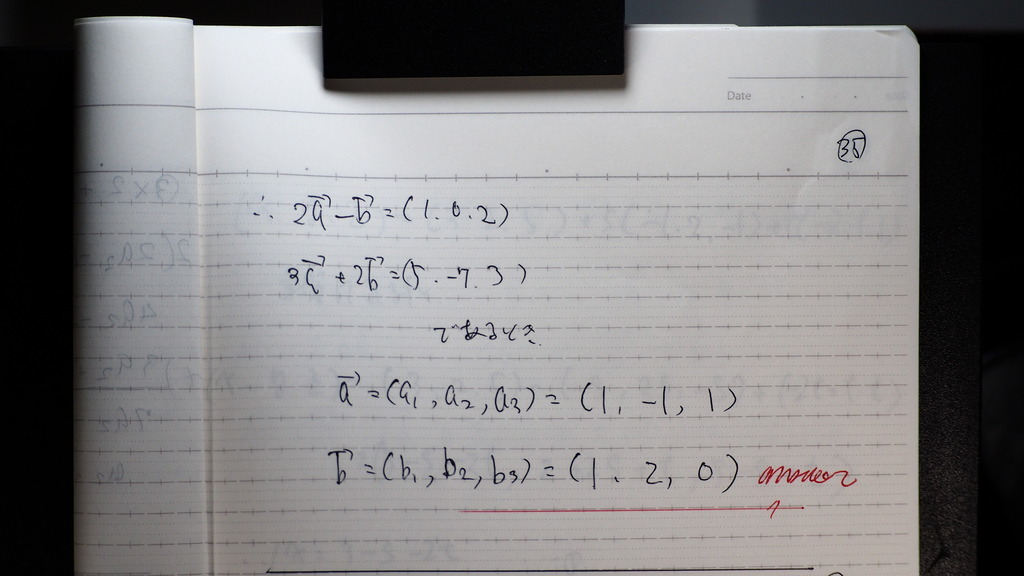 Date
35
∴ 2a⃗ - b⃗ = (1. 0. 2)
3a⃗ + 2b⃗ = (5. -7. 3)
であるとき.
a⃗ = (a₁, a₂, a₃) = (1, -1, 1)
b⃗ = (b₁, b₂, b₃) = (1. 2, 0) answer